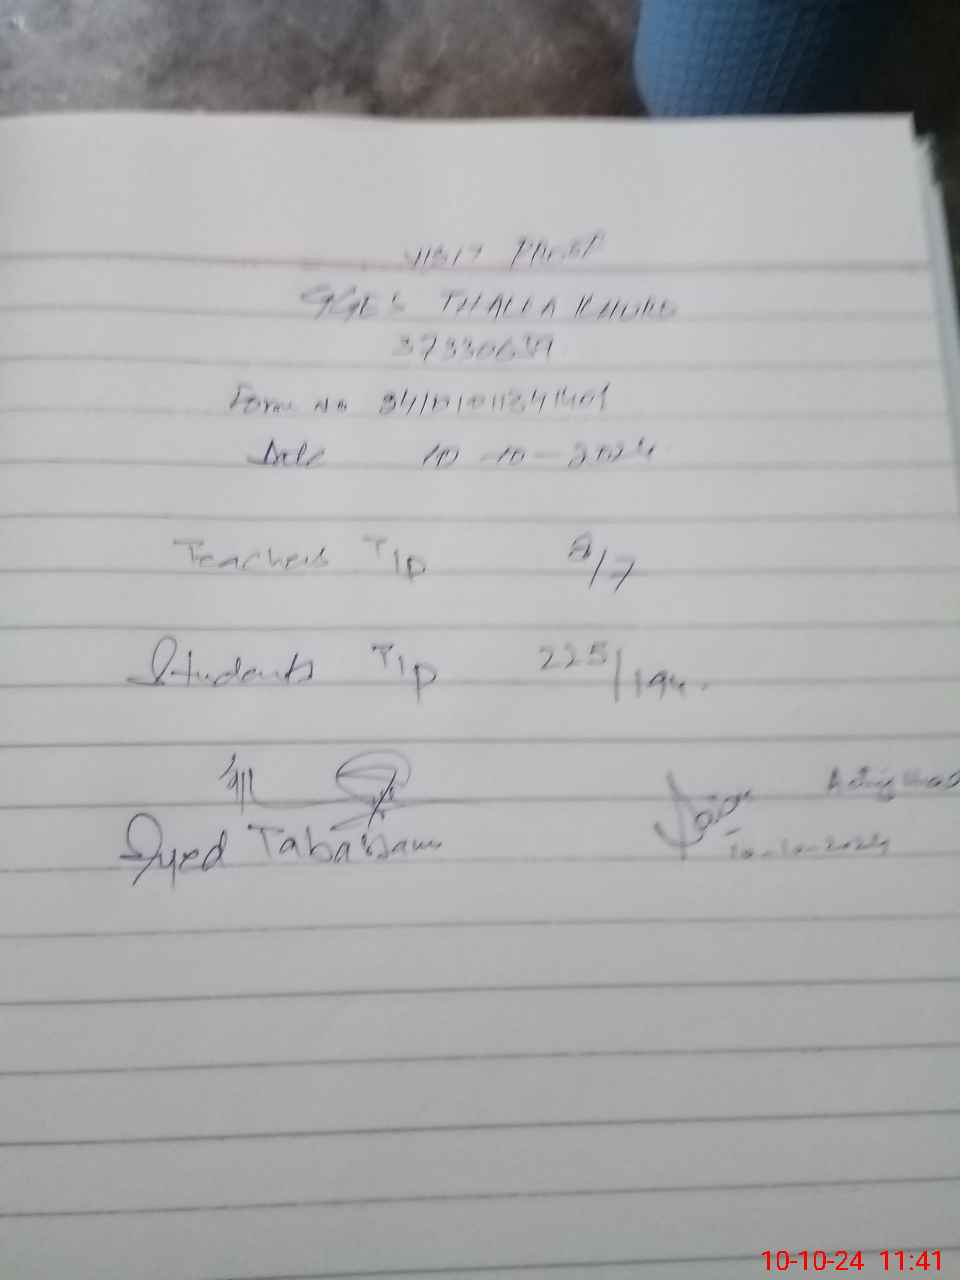 VISIT PROOF
GGES THALLA KHURD
37330639
Form No
Date 10-10-2024
Teachers T/P 8/7
Students T/P 225/194.
Syed Tabassam
Acting Head
10-10-2024
10-10-24 11:41